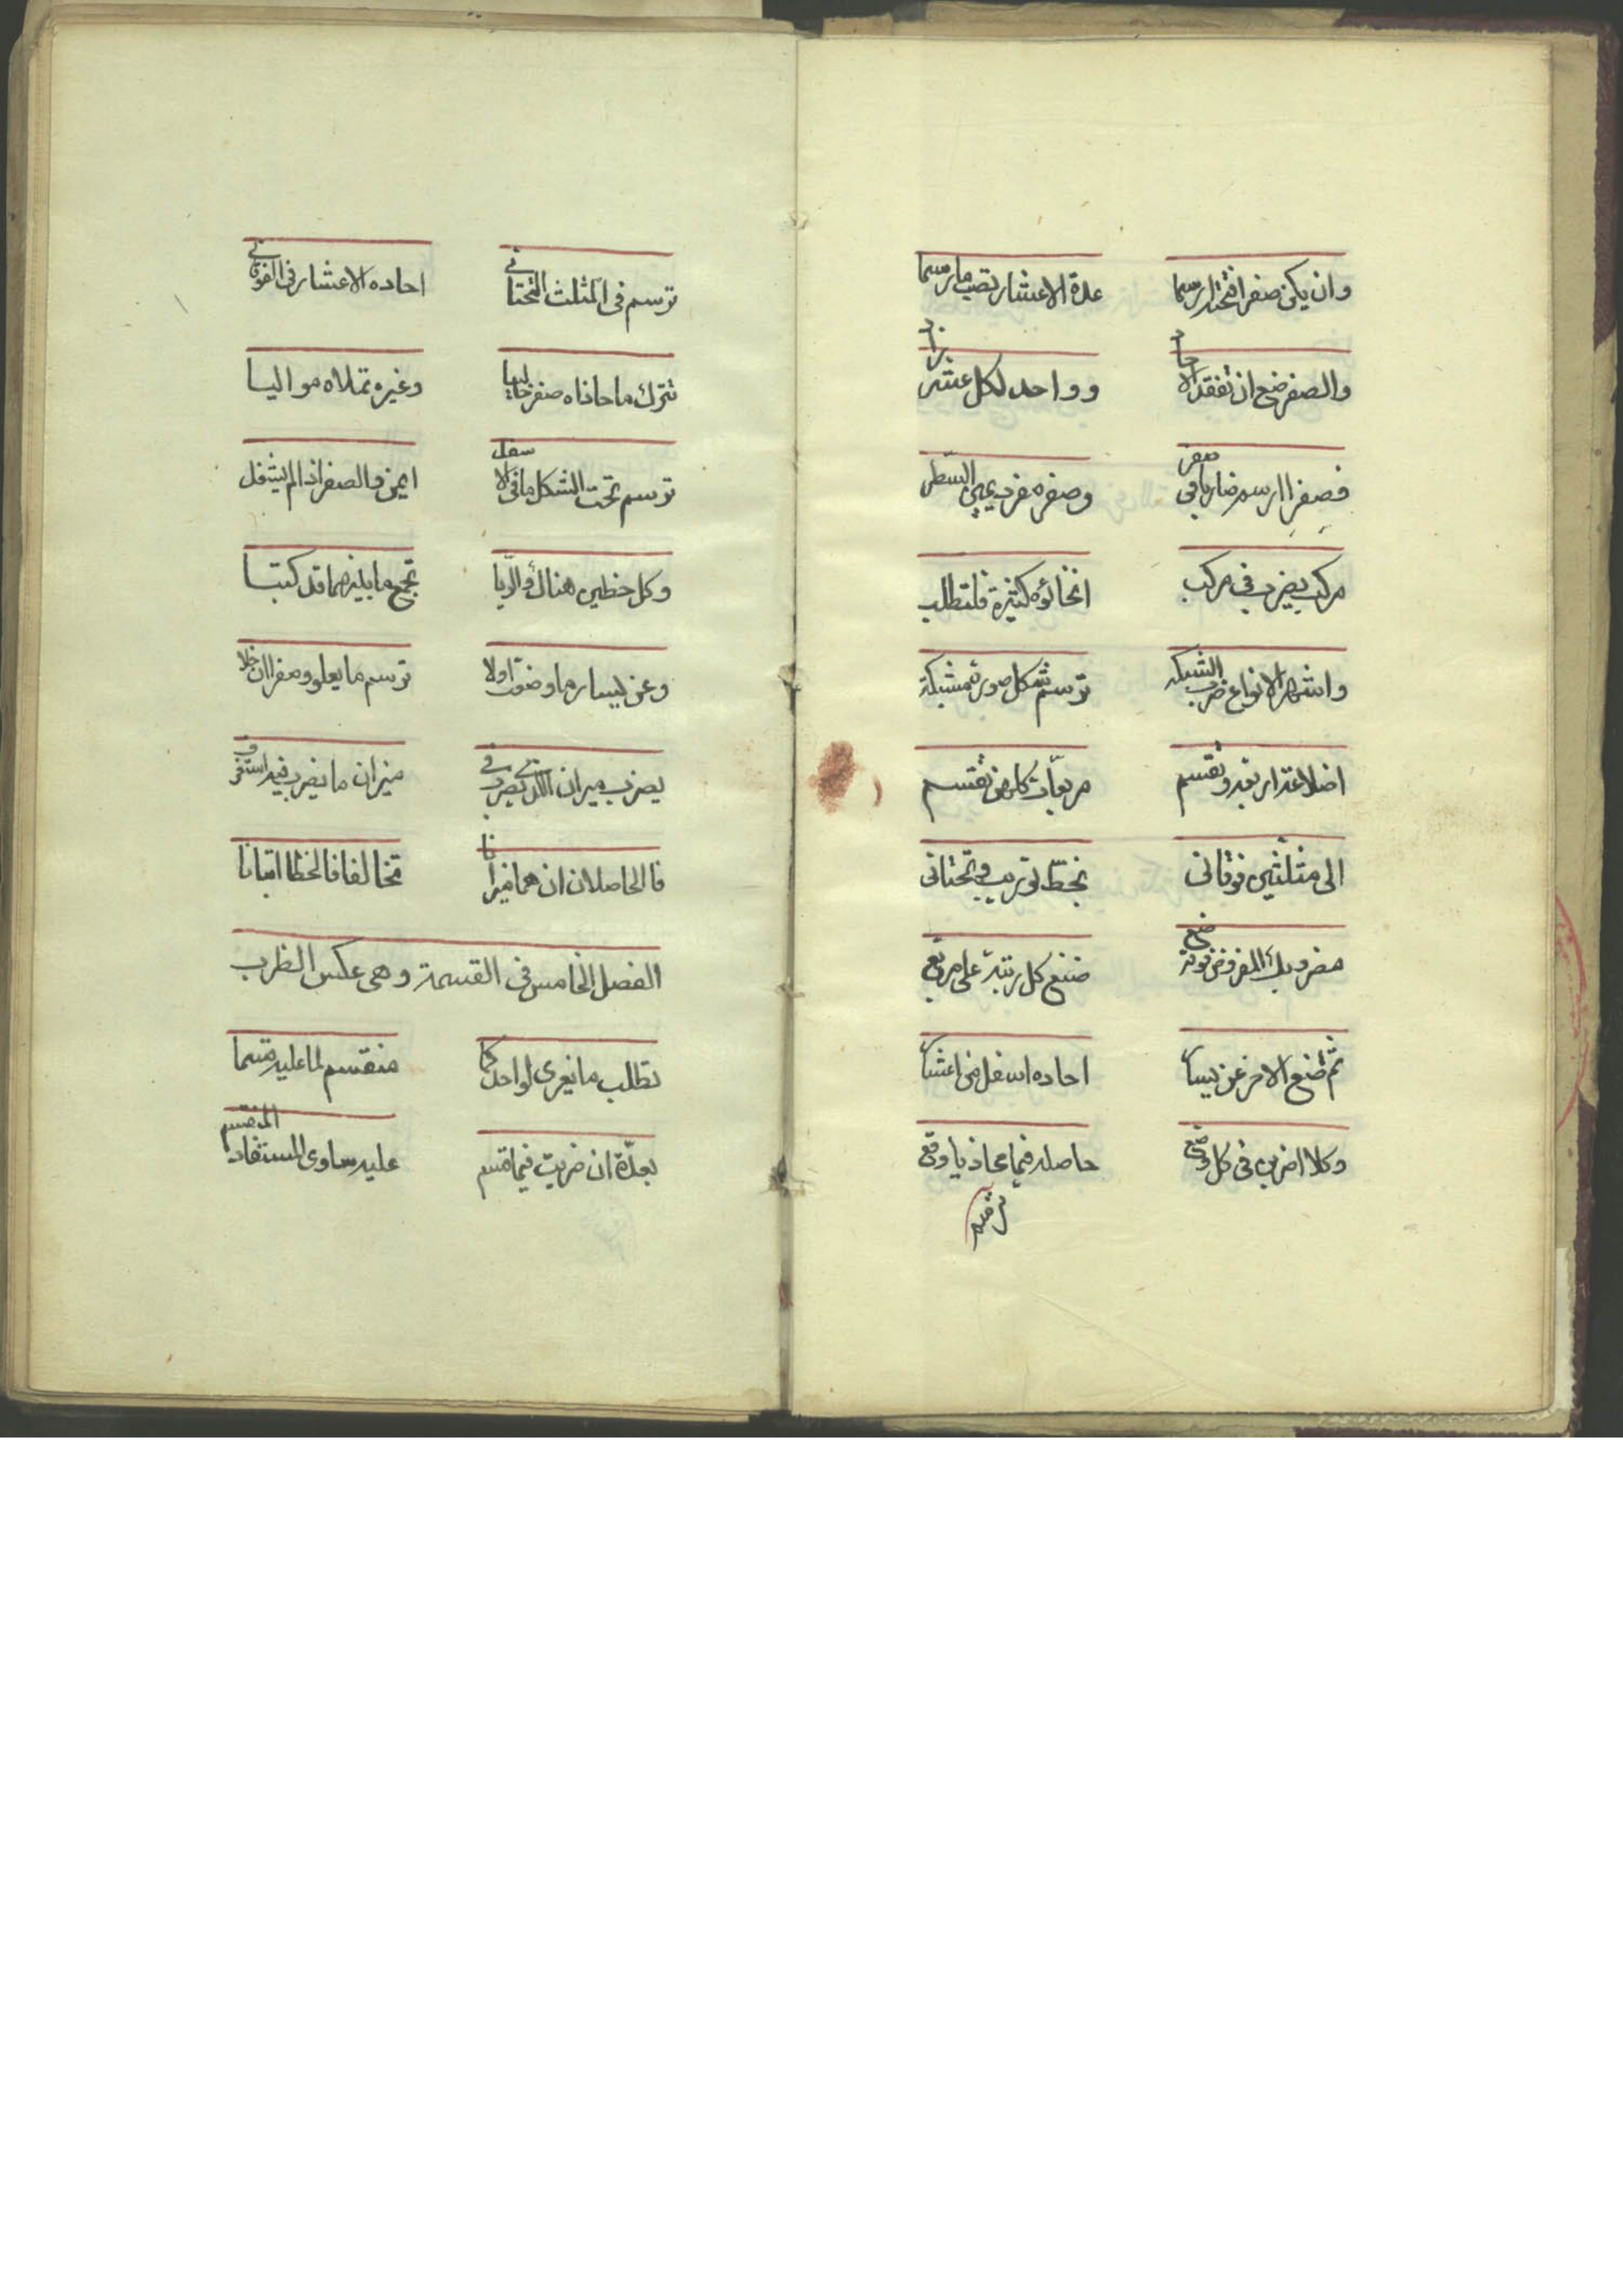 وان يكن صفرا فتحته ارسما عدة الاعشار تصب مارسما
والصفر ضع ان تفقد الاحاد وواحد لكل عشر زاد
فصفرا ارسم ضاربا في صفر وصفر مفرد يجي السطر
مركب يضرب في مركب انحائوه كثيرة فلتطلب
واشهر الانواع ضرب الشبكه ترسم شكل صورة مشبكة
اضلاعه اربعة وتقسم مربعات كل من تقسم
الى مثلثين فوقاني بخط توريب وتحتاني
مضروبك المفروض فوقه ضع ضع كل رتبة على مربع
ثم تضع الاخر عن يسار احاده اسفل من اعشار
وكلا اضرب في كل وضع حاصله فيما يحاذيا وقع
ترسم
ترسم في المثلث التحتاني احاده الاعشار في الفوقاني
تترك ما حاذاه صفر خاليا وغيره تملاه مواليا
ترسم تحت الشكل ما في الاسفل ايمن والصفر اذا لم يشغل
وكل خطين هناك واليا تجمع ما بينهما قد كتبا
وعن يساره ما وضعت اولا ترسم ما يعلو وصفرا ان خلا
يضرب ميزان الذي يضرب في ميزان ما يضرب فيه استقر
فالحاصلان ان هما ميزانا تخالفا فالخطا استبانا
الفصل الخامس في القسمة وهي عكس الظرب
تطلب ما يعرى لواحد كما منقسم لما عليه قسما
بعدة ان ضربت فيما قسم عليه ساوى المستفاد المنقسم